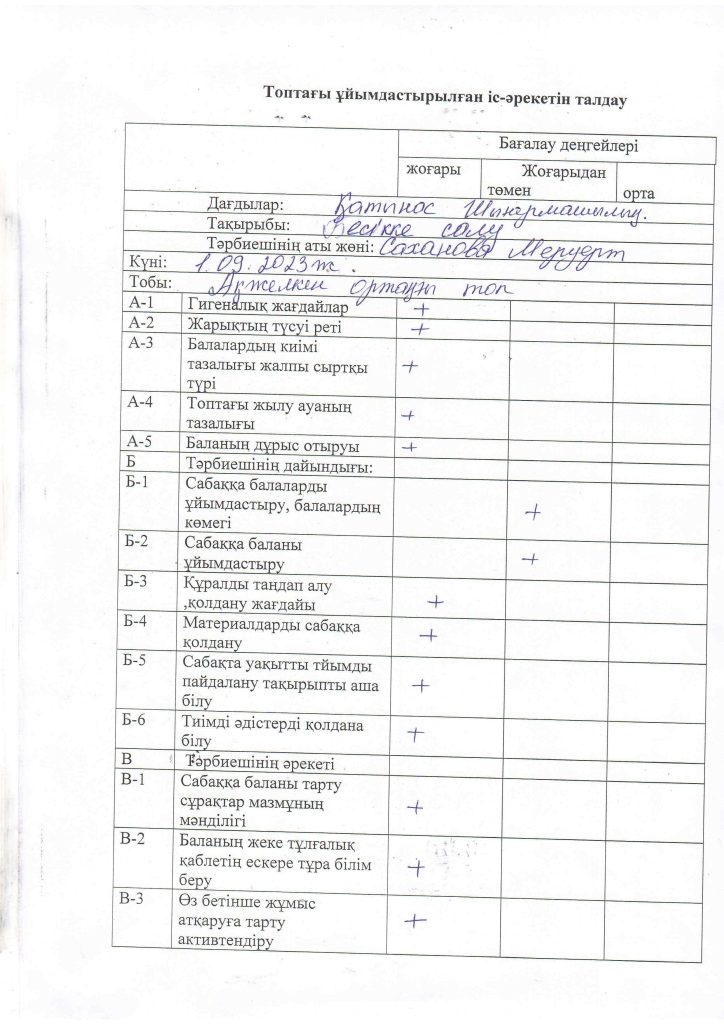 Топтағы ұйымдастырылған іс-әрекетін талдау
Бағалау деңгейлері
жоғары Жоғарыдан төмен орта
Дағдылар: Қатынас Шығармашылық.
Тақырыбы: Бесікке салу
Тәрбиешінің аты жөні: Саханова Меруерт
Күні: 1.09.2023ж.
Тобы: Ақжелкен ортаңғы топ
А-1 Гигеналық жағдайлар +
А-2 Жарықтың түсуі реті +
А-3 Балалардың киімі
тазалығы жалпы сыртқы +
түрі
А-4 Топтағы жылу ауаның
тазалығы +
А-5 Баланың дұрыс отыруы +
Б Тәрбиешінің дайындығы:
Б-1 Сабаққа балаларды
ұйымдастыру, балалардың +
көмегі
Б-2 Сабаққа баланы +
ұйымдастыру
Б-3 Құралды таңдап алу
,қолдану жағдайы +
Б-4 Материалдарды сабаққа +
қолдану
Б-5 Сабақта уақытты тйымды
пайдалану тақырыпты аша +
білу
Б-6 Тиімді әдістерді қолдана +
білу
В Тәрбиешінің әрекеті
В-1 Сабаққа баланы тарту
сұрақтар мазмұның +
мәнділігі
В-2 Баланың жеке тұлғалық
қаблетің ескере тұра білім +
беру
В-3 Өз бетінше жұмыс
атқаруға тарту +
активтендіру